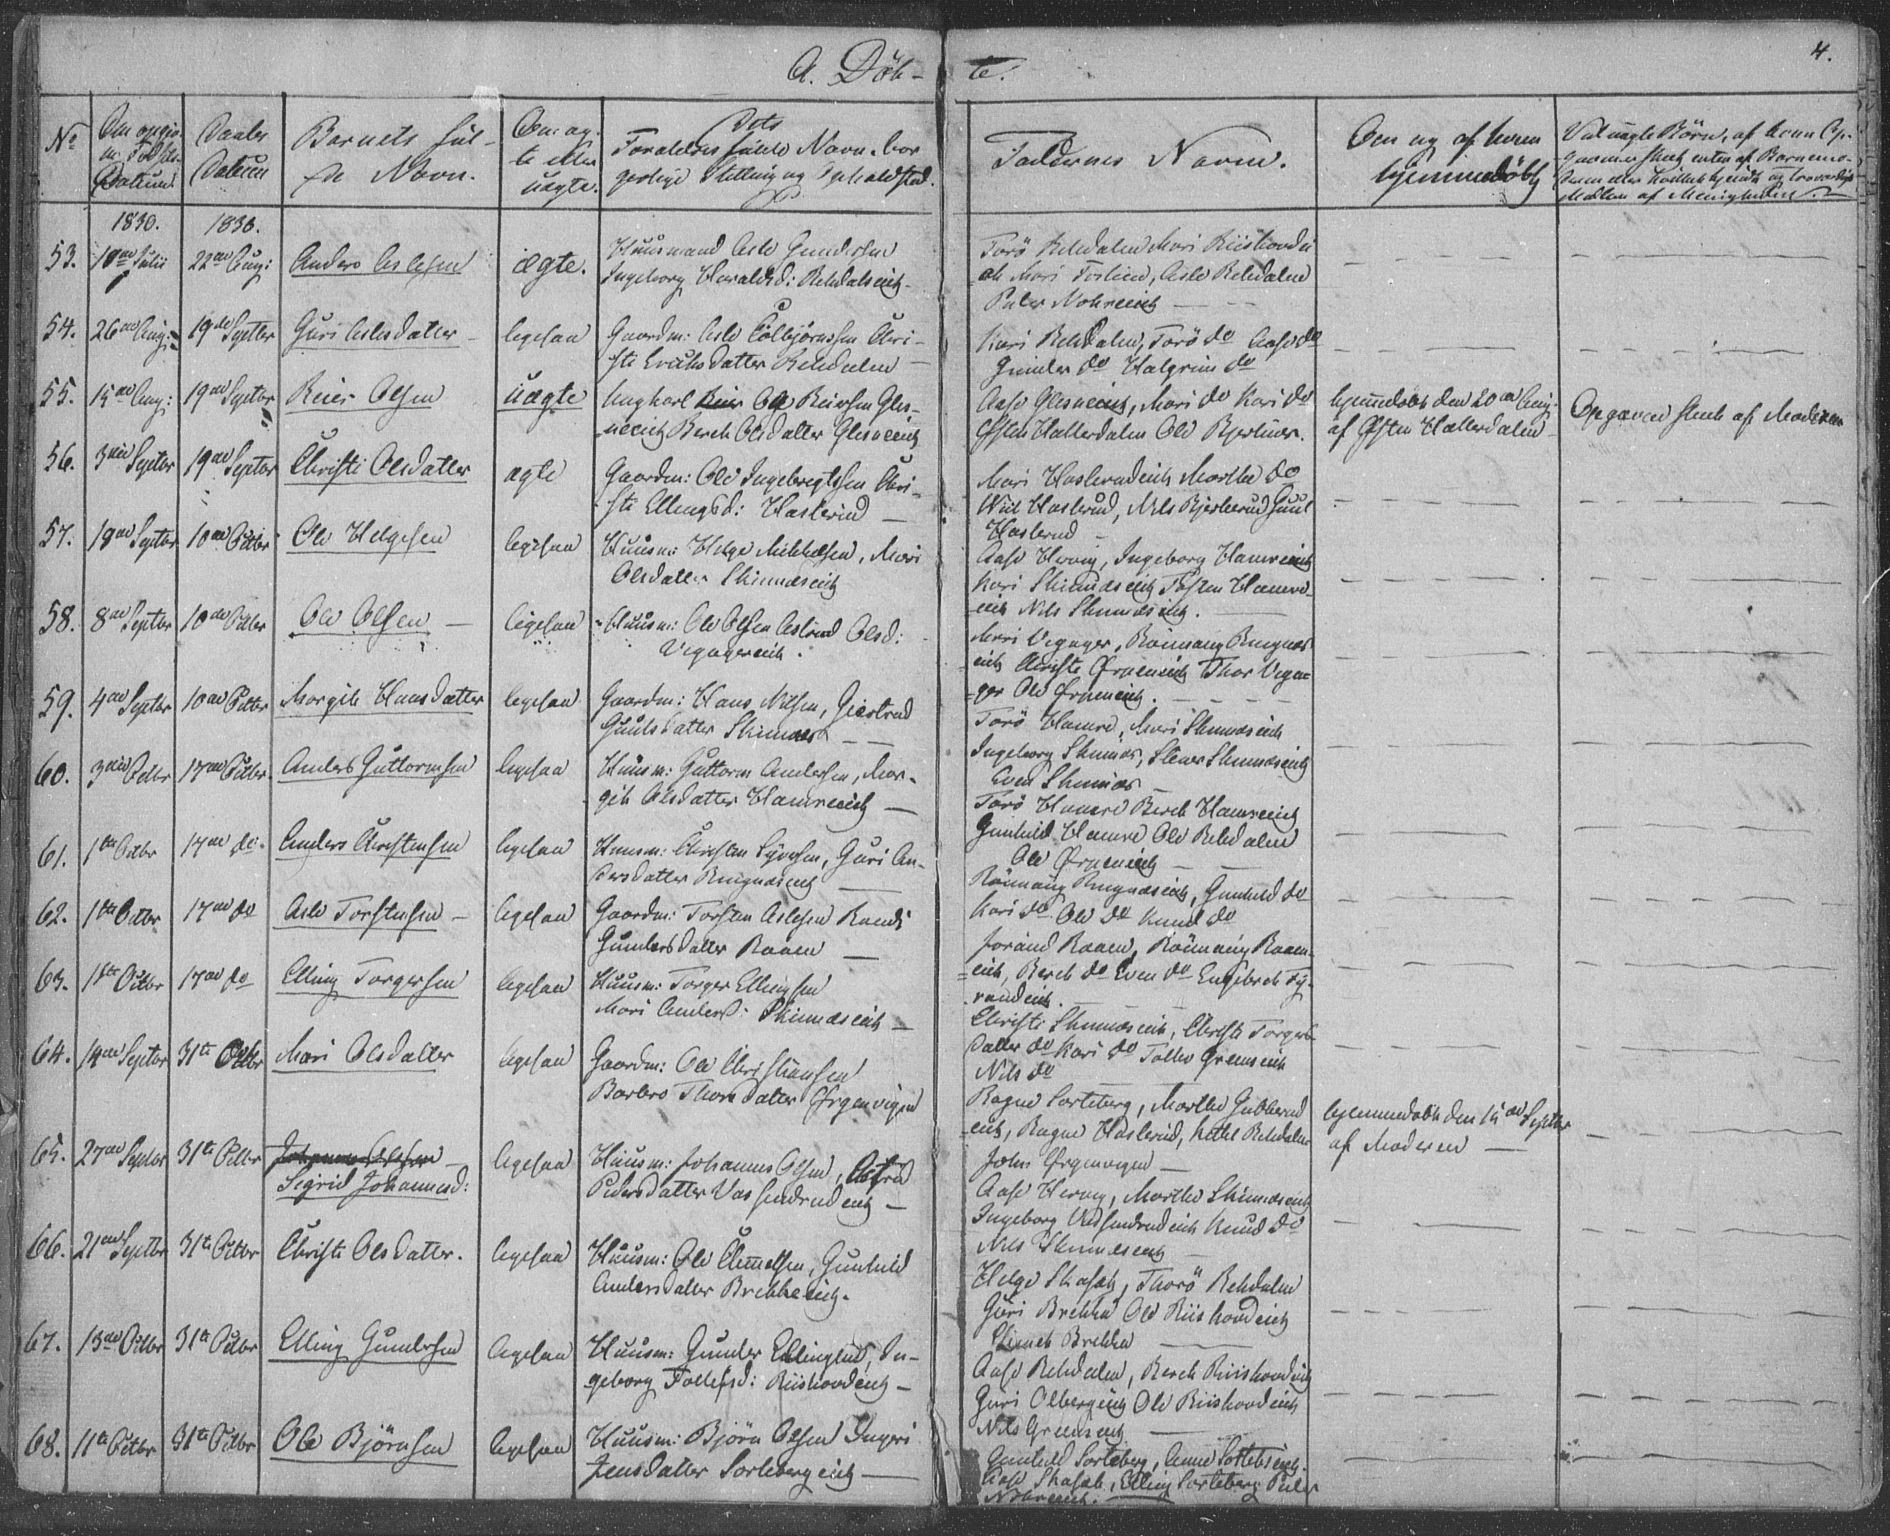 A. Döb-
te.
4.
No
Den opgiv-
ne Födsels-
Datum
Daabs
Datum
Barnets ful-
de Navn.
Om æg-
te eller
uægte.
Dets
Forældres fulde Navn, bor-
gerlige Stilling og Opholdsted.
Faddernes Navne.
Om og af hvem
hjemmedöbt
Ved uægte Börn, af hvem Op-
gaven er skeet, enten af Barnemo-
deren eller
Medlem af Menigheden.
1830.
1830.
53. 18de Julii 22de Aug: Anders Aslesen ægte. Huusmand Asle Gundersen
Ingeborg Haralds: Rehdalseich
Torö Rehdalen Mari Riishovde
Mari Asle Rehdalen
Peder
54. 26de Aug: 19de Septbr Guri Aslesdatter ligesaa Gaardm: Asle Tolbjörnssen Chri-
sti Erichsdatter Rehdalen
Kari Rehdalen, Torö do Aase do
Gunder do Halgrim do
55. 15de Aug: 19de Septbr Reier Olsen uægte Ungkarl Reier Ole Reiersen Gles-
neeich Berth Olsdatter Glesneeich
Aase Glesneeich, Mari do Kari do
Østen Hallerdalen Ole Bjertnes.
hjemmedöbt den 20de Aug.
af Østen Hallerdalen
Opgaven skeet af Moderen
56. 3die Septbr 19de Septbr Christi Olsdatter ægte Gaardm: Ole Ingebregtsen Chri-
sti Ellingsd: Haslerud
Mari Haslerudeich Marthe do
Haslerud, Nils Bjerkerud Guul
Haslerud
57. 18de Septbr 10de Octbr Ole Helgesen ligesaa Huusm: Helge Mikkelsen, Mari
Olsdatter Skinnæseich
Aase Herang, Ingeborg Hamreeich
Kari Skinnæseich Tosten Hamre-
eich Nils Skinnæseich.
58. 8de Septbr 10de Octbr Ole Olsen ligesaa Huusm: Ole Olsen Astrid Olsd:
Vegagereich.
Mari Vegager, Rönnaug Ringnæs-
eich Christi Ørgeneich Thor Vega-
ger Ole Ørgeneich.
59. 4de Septbr 10de Octbr Margith Hansdatter ligesaa Gaardm: Hans Nilsen, Giertrud
Guulsdatter Skinnæs
Torö Hamre, Mari Skinnæseich
Ingeborg Skinnæs, Stener Skinnæseich
Even Skinnæs
60. 3die Octbr 17de Octbr. Anders Guttormsen ligesaa Huusm: Guttorm Andersen, Mar-
gith Olsdatter Hamreeich
Torö Hamre Berth Hamreeich
Gunhild Hamre Ole Rehdalen
Ole Ørgeneich
61. 1ste Octbr 17de do. Anders Christensen ligesaa Huusm: Christen Syversen, Guri An-
dersdatter Ringnæseich
Rönnaug Ringnæseich, Gunhild do
Kari do Ole do Knud do
62. 1ste Octbr 17de do Asle Torstensen ligesaa Gaardm: Torsten Aslesen Randi
Gundersdatter Raaen
Jorand Raaen, Rönnaug Raaen-
eich, Berth do Even do Engebreth
63. 1ste Octbr 17de do Elling Torgersen ligesaa Huusm: Torger Ellingsen
Mari Andersd: Skinnæseich
Christi Skinnæseich, Christi Torgers-
datter do Kari do Tollev Grønseich
Nils do
64. 14de Septbr 31te Octbr Mari Olsdatter ligesaa Gaardm: Ole Christiansen
Barbro Thorsdatter Ørgenvigen
Ragne Sorteberg, Marthe Gubberud
eich, Ragne Haslerud, Kittel Rehdalen
John Ørgenvigen
hjemmedöbt den 15de Septbr
af Moderen
65. 27de Septbr 31te Octbr Johannes Olsen
Sigrid Johannesd: ligesaa Huusm: Johannes Olsen, Astrid
Pedersdatter Vassendrudeich
Aase Herang, Marthe Skinnæseich
Ingeborg Vassendrudeich Knud do
Nils Skinnæseich
66. 21de Septbr 31te Octbr Christi Olsdatter. ligesaa Huusm: Ole Clemetsen, Gunhild
Andersdatter Brekkeeich.
Helge Skasæt, Thorö Rehdalen
Guri Brekke Ole Riishovdeich
Clemet Brekke
67. 13de Octbr 31te Octbr Elling Gundersen ligesaa Huusm: Gunder Ellingsen, In-
geborg Tollefsd: Riishovdeich
Aase Rehdalen, Berth Riishovdeich
Guri Olbergeich Ole Riishovdeich
Nils Grønseich
68. 11te Octbr 31te Octbr Ole Björnsen ligesaa Huusm: Björn Olsen Ingeri
Jensdatter Sortebergeich
Gunhild Sorteberg, Anne Sortebergeich
Aase Skasæt, Elling Sorteberg Peder